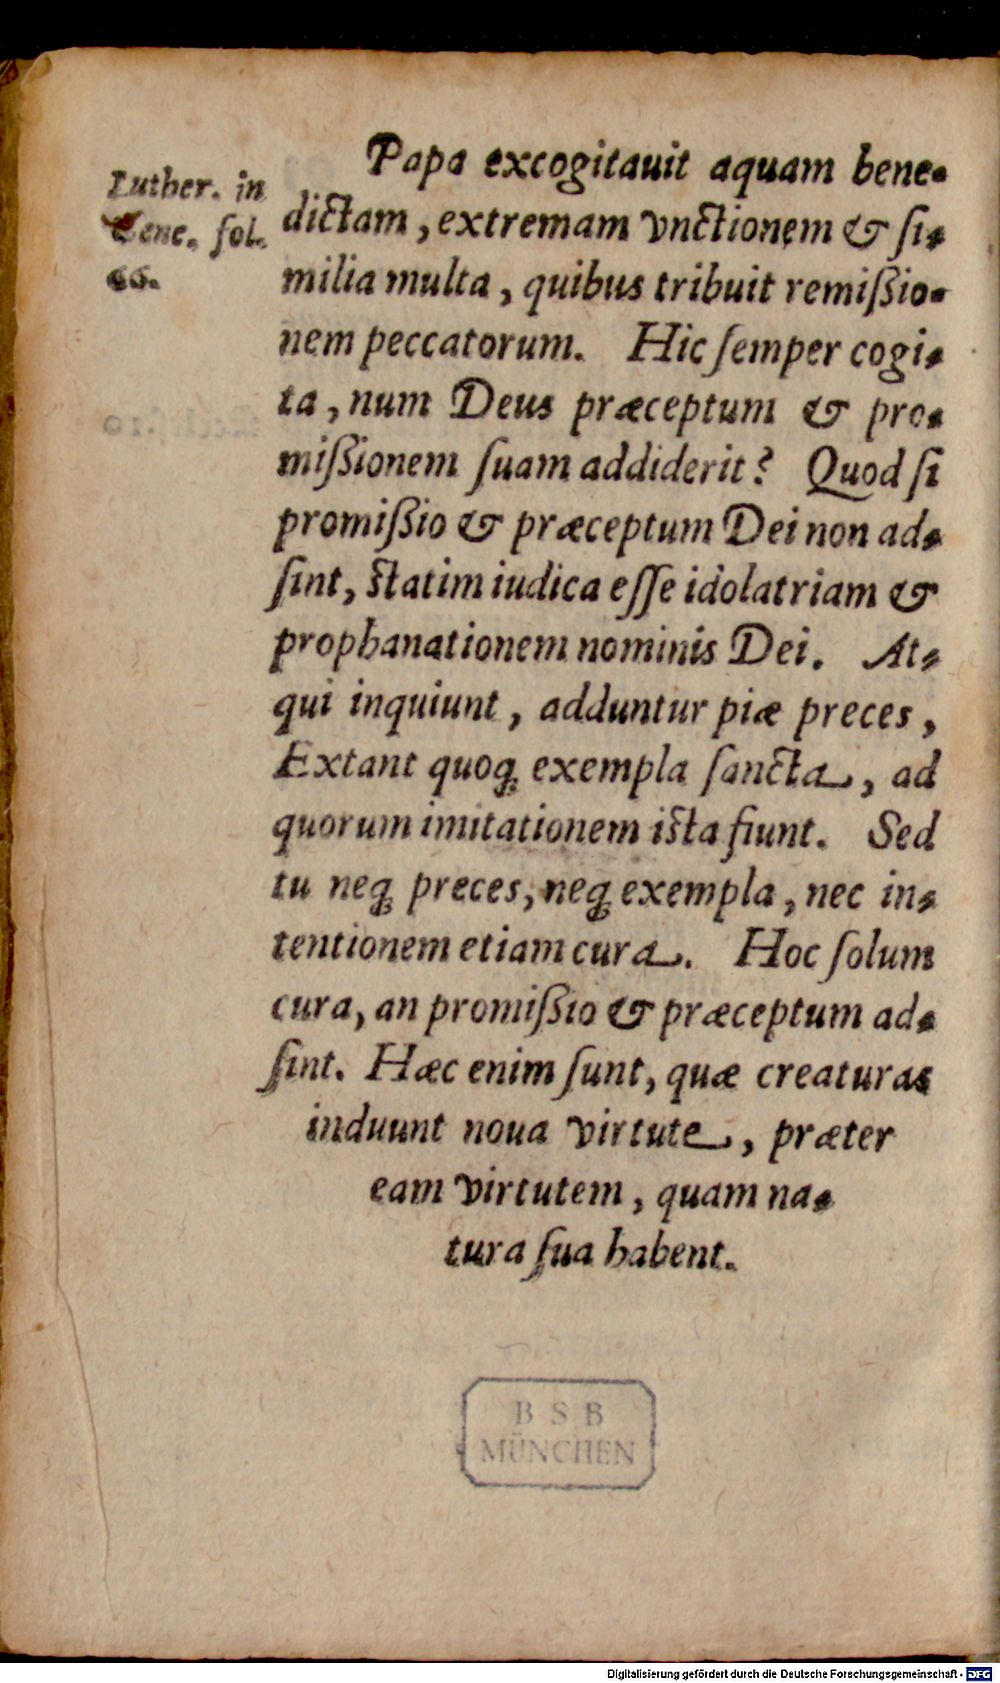 Luther. in
Gene. fol.
66.
Papa excogitauit aquam bene-
dictam, extremam vnctionem & ſi-
milia multa, quibus tribuit remiſsio-
nem peccatorum. Hic ſemper cogi-
ta, num Deus præceptum & pro-
miſsionem ſuam addiderit? Quod ſi
promiſsio & præceptum Dei non ad-
ſint, ſtatim iudica eſſe idolatriam &
prophanationem nominis Dei. At-
qui inquiunt, adduntur piæ preces,
Extant quoq; exempla ſancta, ad
quorum imitationem iſta fiunt. Sed
tu neq; preces, neq; exempla, nec in-
tentionem etiam cura. Hoc ſolum
cura, an promiſsio & præceptum ad-
ſint. Hæc enim ſunt, quæ creaturas
induunt noua virtute, præter
eam virtutem, quam na-
tura ſua habent.
B S B
MÜNCHEN
Digitalisierung gefördert durch die Deutsche Forschungsgemeinschaft - DFG